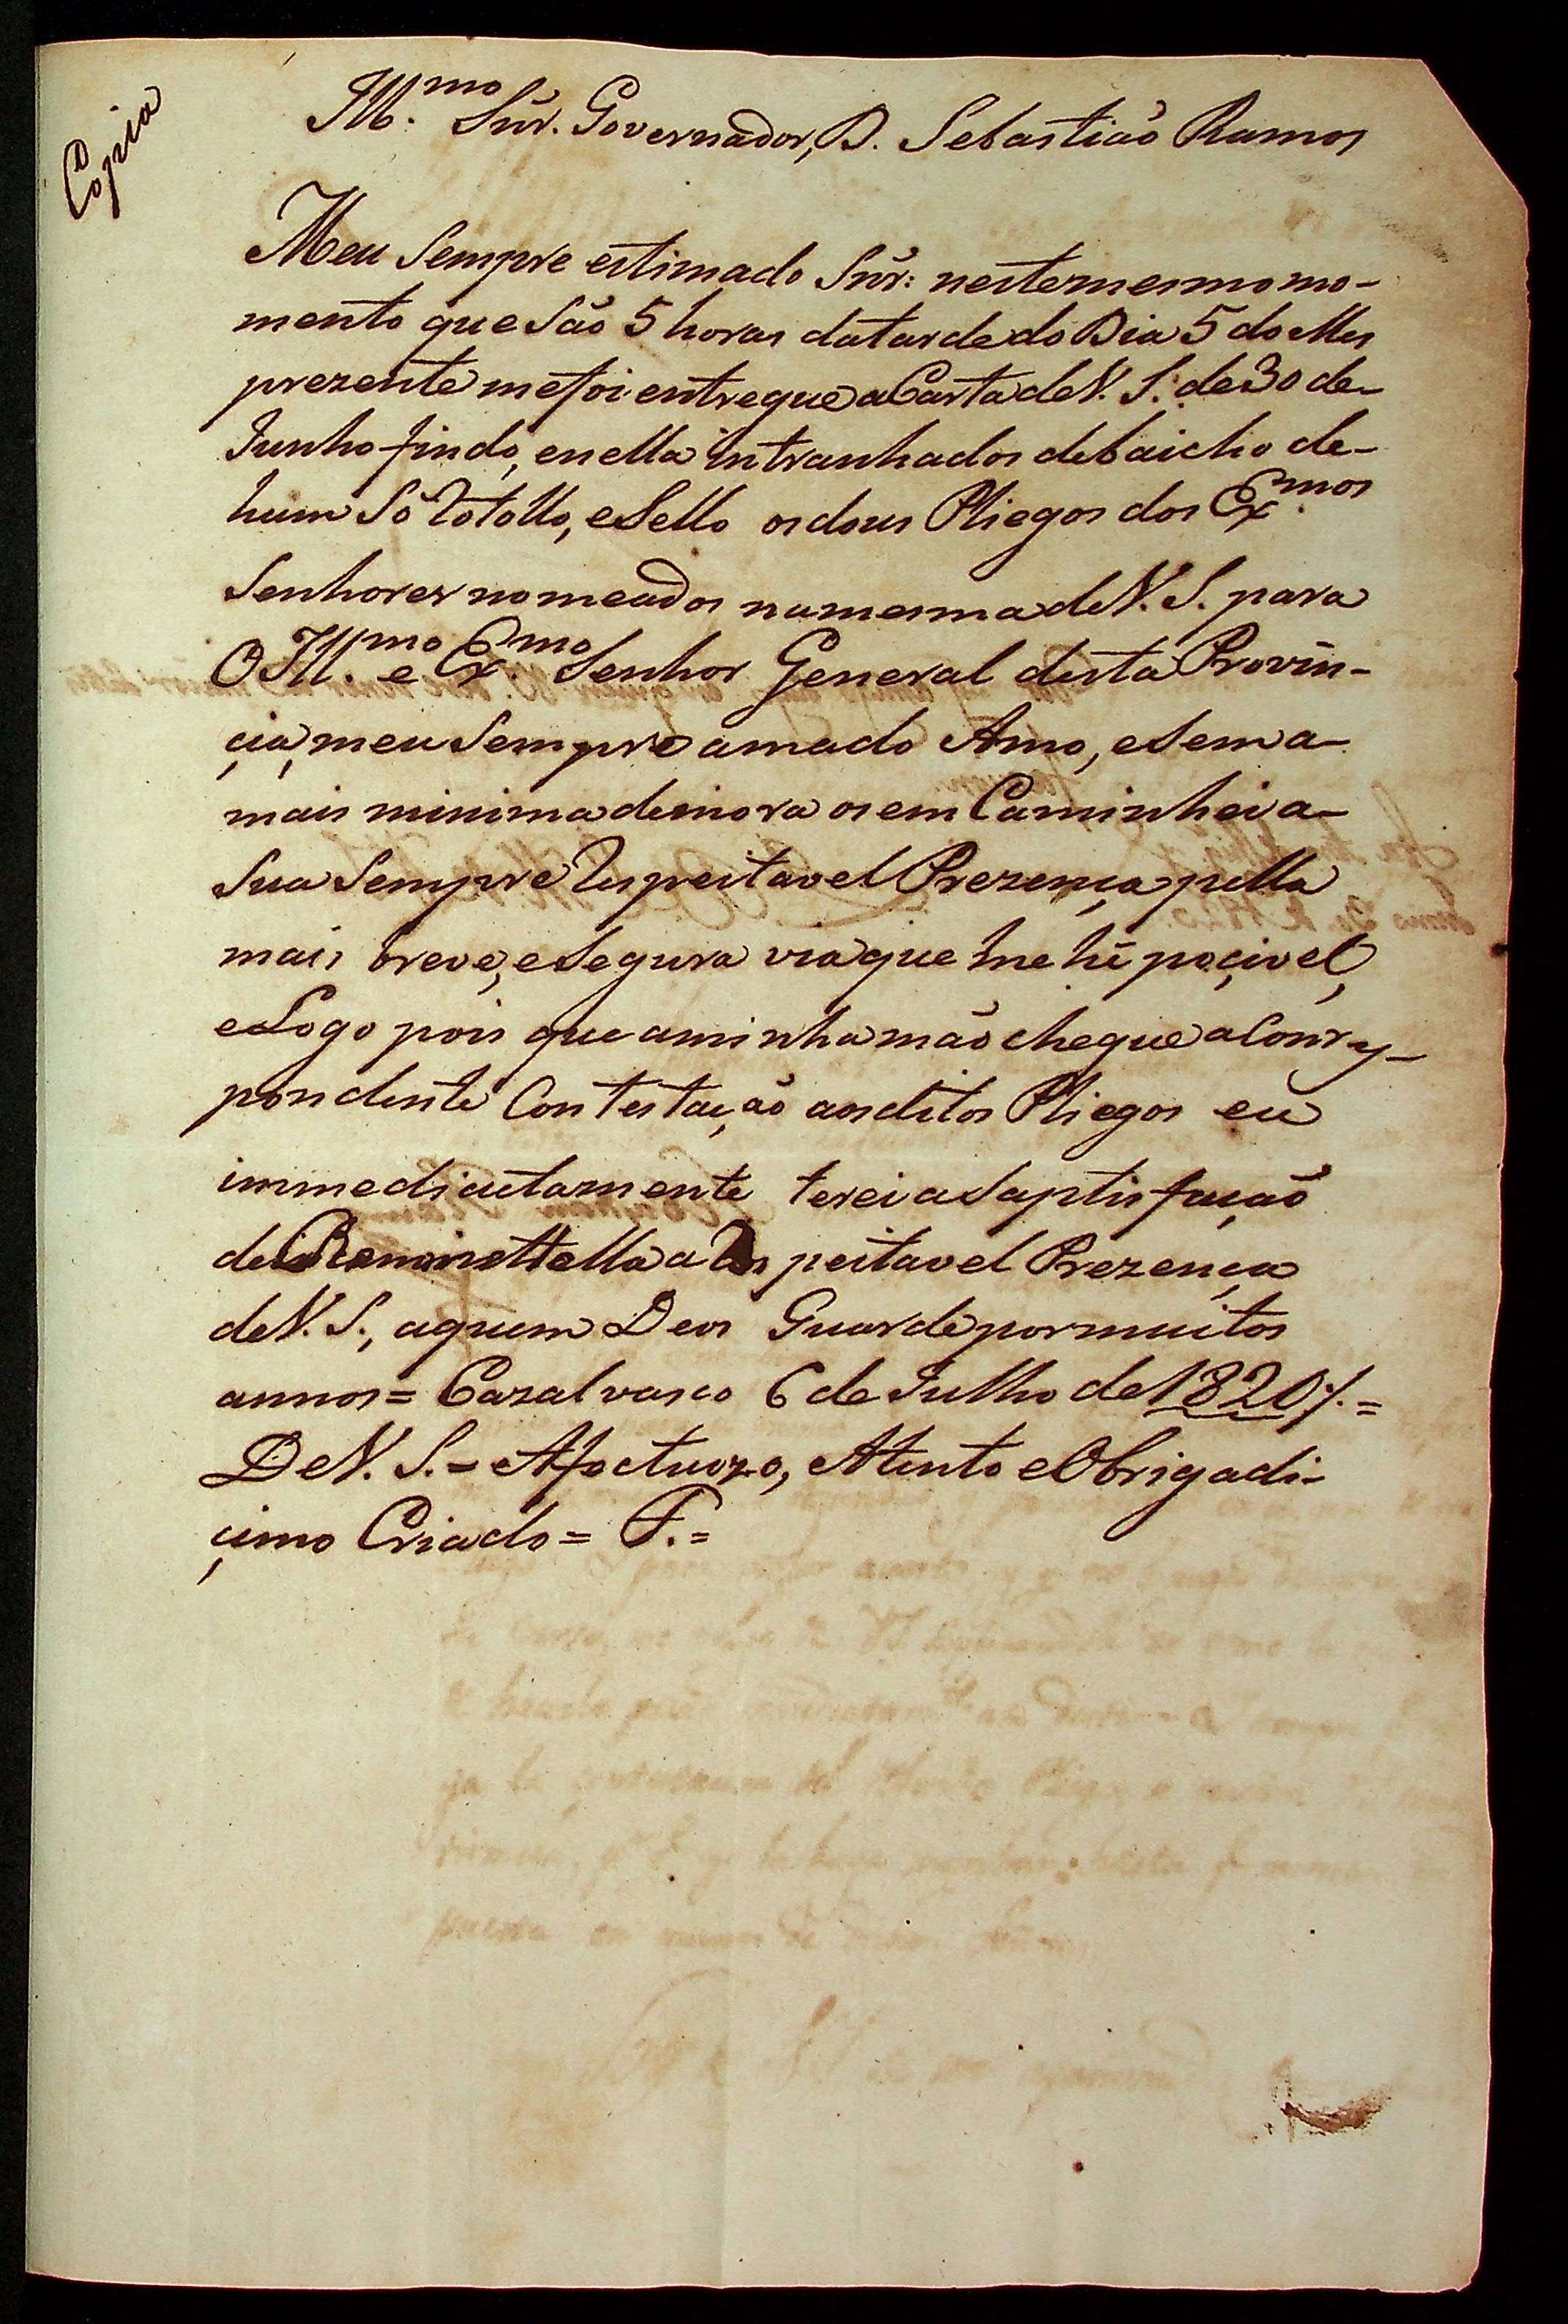 Copia
Ill.mo Snr. Governador, D. Sebastião Ramos
Meu Sempre estimado Snr: neste mesmo mo-
mento que São 5 horas da tarde do Dia 5 do Mes
prezente me foi entregue a Carta de V. S. de 30 de
Junho findo, e nella intranhados debaicho de
hum Só Totollo, e Sello os dous Pliegos dos Ex.mos
Senhores nomeados na mesma de V. S. para
O Ill.mo e Ex.mo Senhor General desta Provin-
çia, meu Sempre amado Amo, e Sem a
mais minima demora os em Caminhei a
Sua Sempre Respeitavel Prezença pella
mais breve, e Segura via que me hé poçivel,
e Logo pois que a minha mão chegue a Corres-
pondente Contestação aos ditos Pliegos eu
immediactamente terei a Saptisfação
de a Respeitavel Prezença
de V. S., a quem Deos Guarde por muitos
annos = Cazalvasco 6 de Julho de 1820 /. =
De V. S. = Afectuozo, Atento e Obrigadi-
çimo Criado = F. =